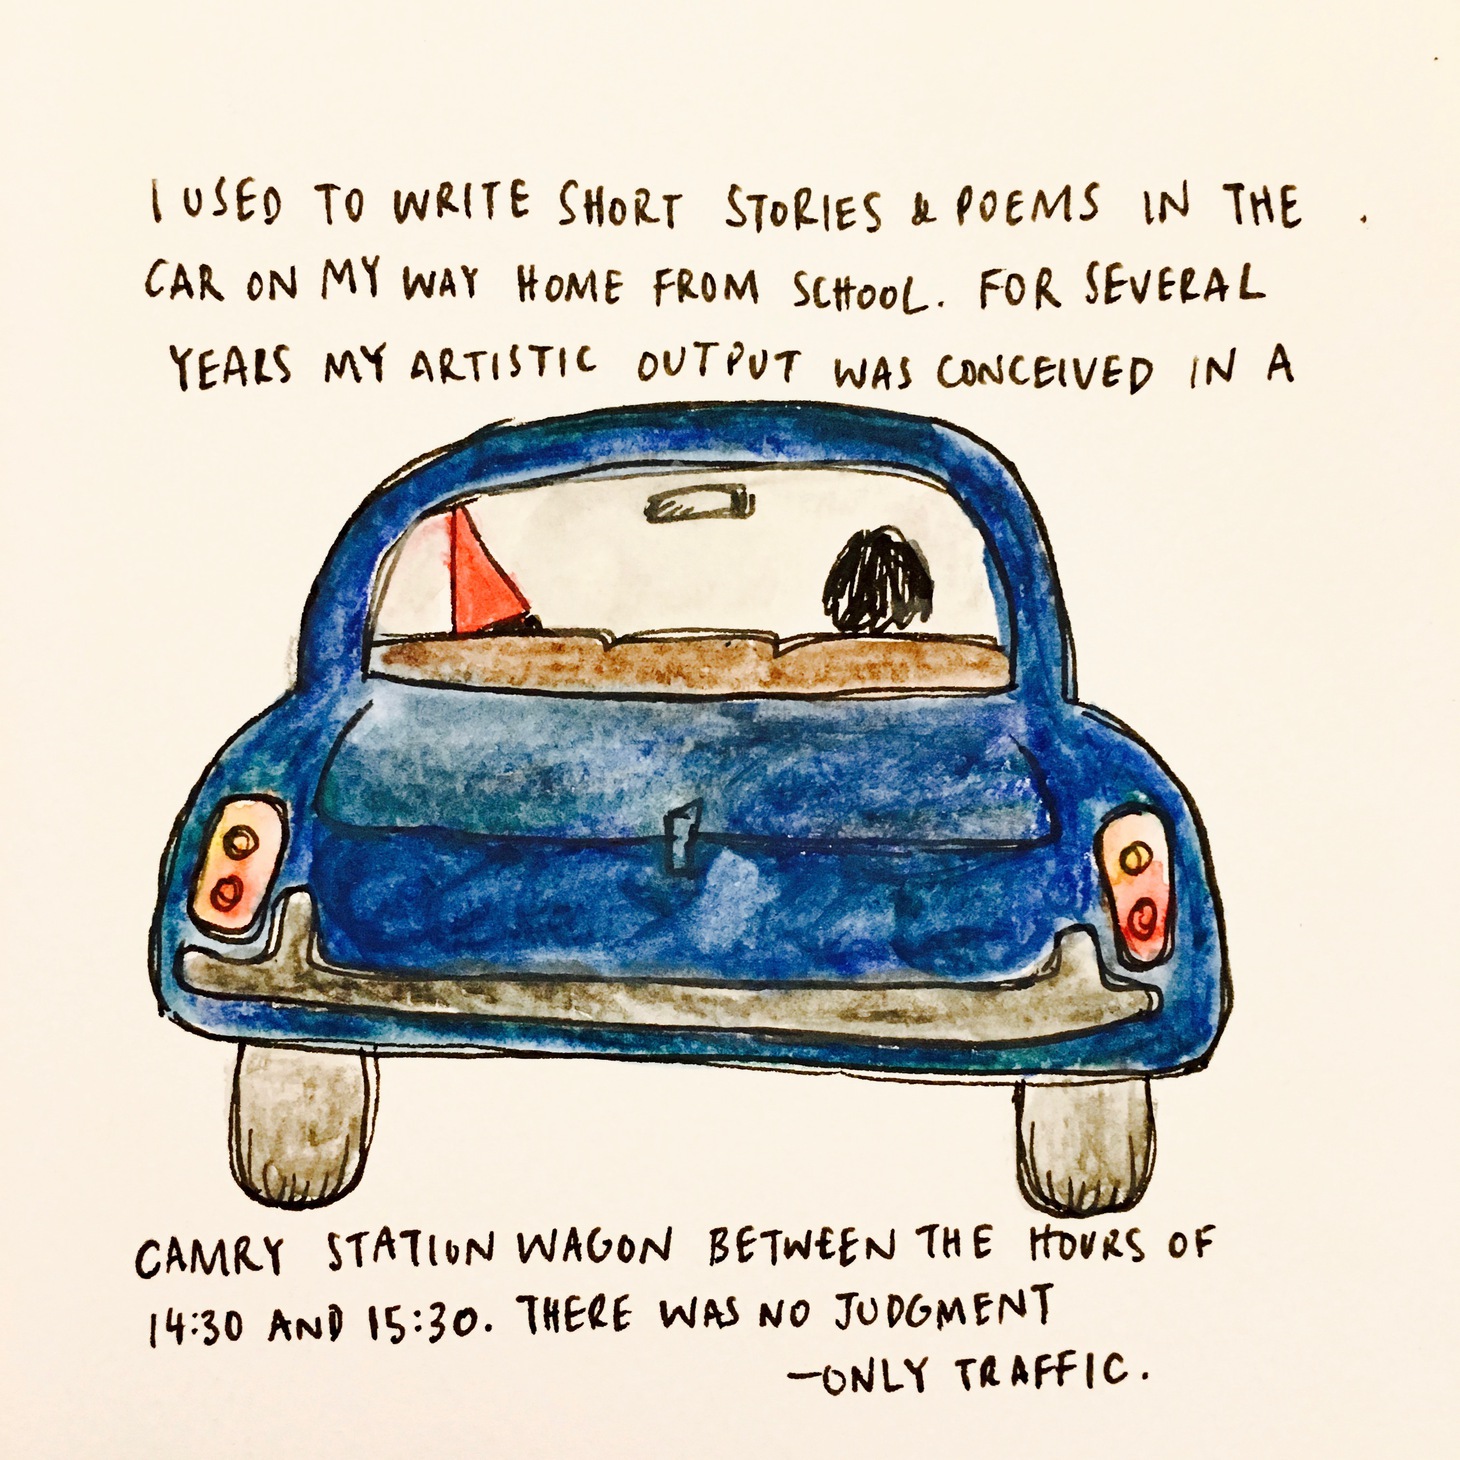 I USED TO WRITE SHORT STORIES & POEMS IN THE
CAR ON MY WAY HOME FROM SCHOOL. FOR SEVERAL
YEARS MY ARTISTIC OUTPUT WAS CONCEIVED IN A
CAMRY STATION WAGON BETWEEN THE HOURS OF
14:30 AND 15:30. THERE WAS NO JUDGMENT
—ONLY TRAFFIC.